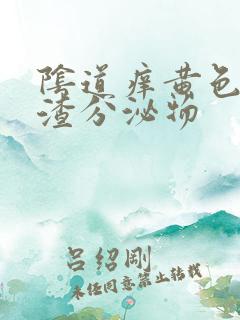 陰道痒黄色
渣分泌物
吕绍刚
未任同意禁止转载